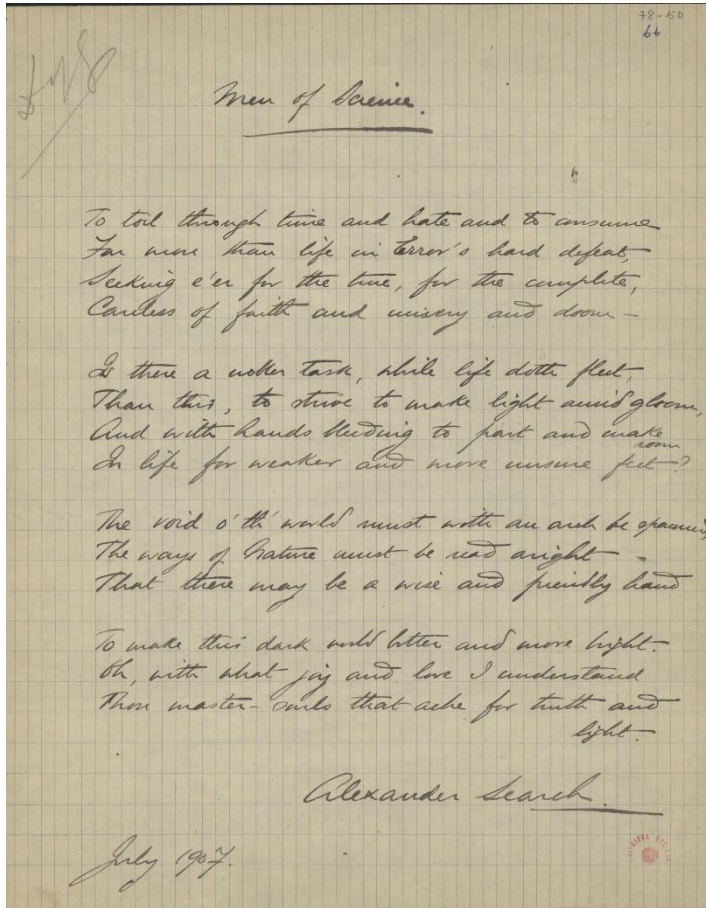 78-50
66
Men of Science.
To toil through time and hate and to consume
Far more than life in Error's hard defeat,
Seeking e'er for the true, for the complete,
Careless of faith and misery and doom –
Is there a nobler task, while life doth fleet,
Than this, to strive to make light amid gloom,
And with hands bleeding to part and make
room
In life for weaker and more unsure feet?
The void o' th' world must with an arch be spanned,
The ways of Nature must be read aright –
That there may be a wise and friendly hand
To make this dark world better and more bright.
Oh, with what joy and love I understand
Those master-souls that ache for truth and
light.
Alexander Search.
July 1907.